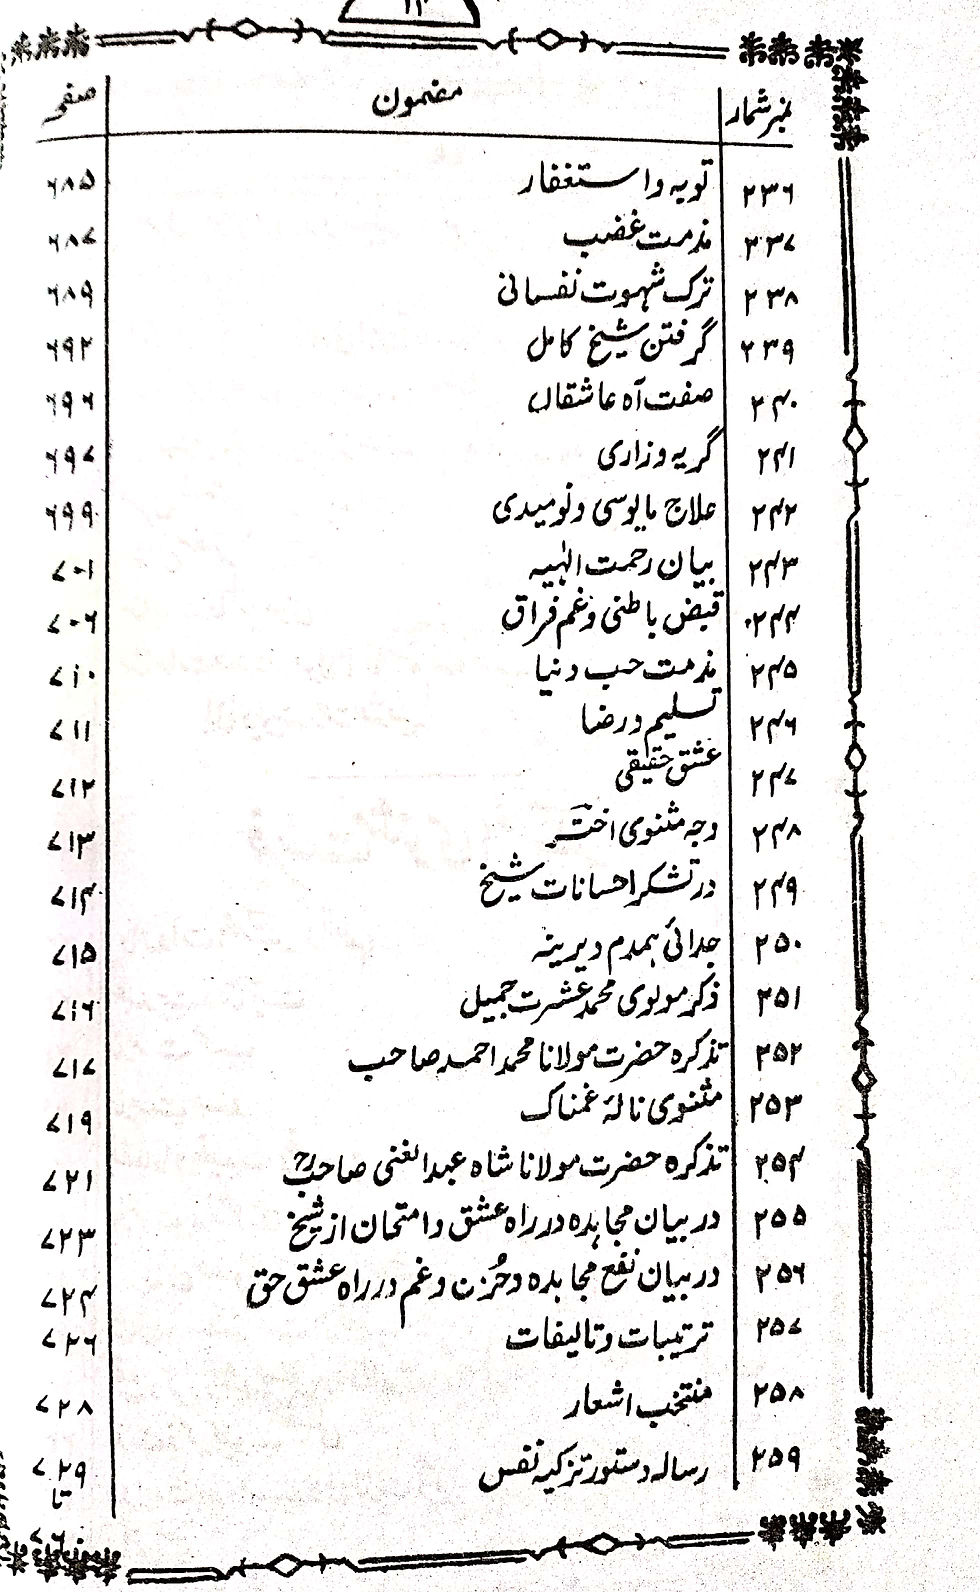 ۱۴
نمبر شمار مضمون صفحہ
۲۳۶ توبہ و استغفار ۶۸۵
۲۳۷ مذمت غضب ۶۸۷
۲۳۸ ترک شہوت نفسانی ۶۸۹
۲۳۹ گرفتن شیخ کامل ۶۹۲
۲۴۰ صفت آہ عاشقاں ۶۹۶
۲۴۱ گریہ وزاری ۶۹۷
۲۴۲ علاج مایوسی و نومیدی ۶۹۹
۲۴۳ بیان رحمت الٰہیہ ۷۰۱
۲۴۴ قبض باطنی و غم فراق ۷۰۶
۲۴۵ مذمت حب دنیا ۷۱۰
۲۴۶ تسلیم و رضا ۷۱۱
۲۴۷ عشق حقیقی ۷۱۲
۲۴۸ وجہ مثنوی اختر ۷۱۳
۲۴۹ در تشکر احسانات شیخ ۷۱۴
۲۵۰ جدائی ہمدم دیرینہ ۷۱۵
۲۵۱ ذکر مولوی محمد عشرت جمیل ۷۱۶
۲۵۲ تذکرہ حضرت مولانا محمد احمد صاحب ۷۱۷
۲۵۳ مثنوی نالۂ غمناک ۷۱۹
۲۵۴ تذکرہ حضرت مولانا شاہ عبدالغنی صاحبؒ ۷۲۱
۲۵۵ در بیان مجاہدہ در راہ عشق و امتحان از شیخ ۷۲۳
۲۵۶ در بیان نفع مجاہدہ و حُزن و غم در راہ عشق حق ۷۲۴
۲۵۷ ترتیبات و تالیفات ۷۲۶
۲۵۸ منتخب اشعار ۷۲۸
۲۵۹ رسالہ دستور تزکیہ نفس ۷۲۹
تا